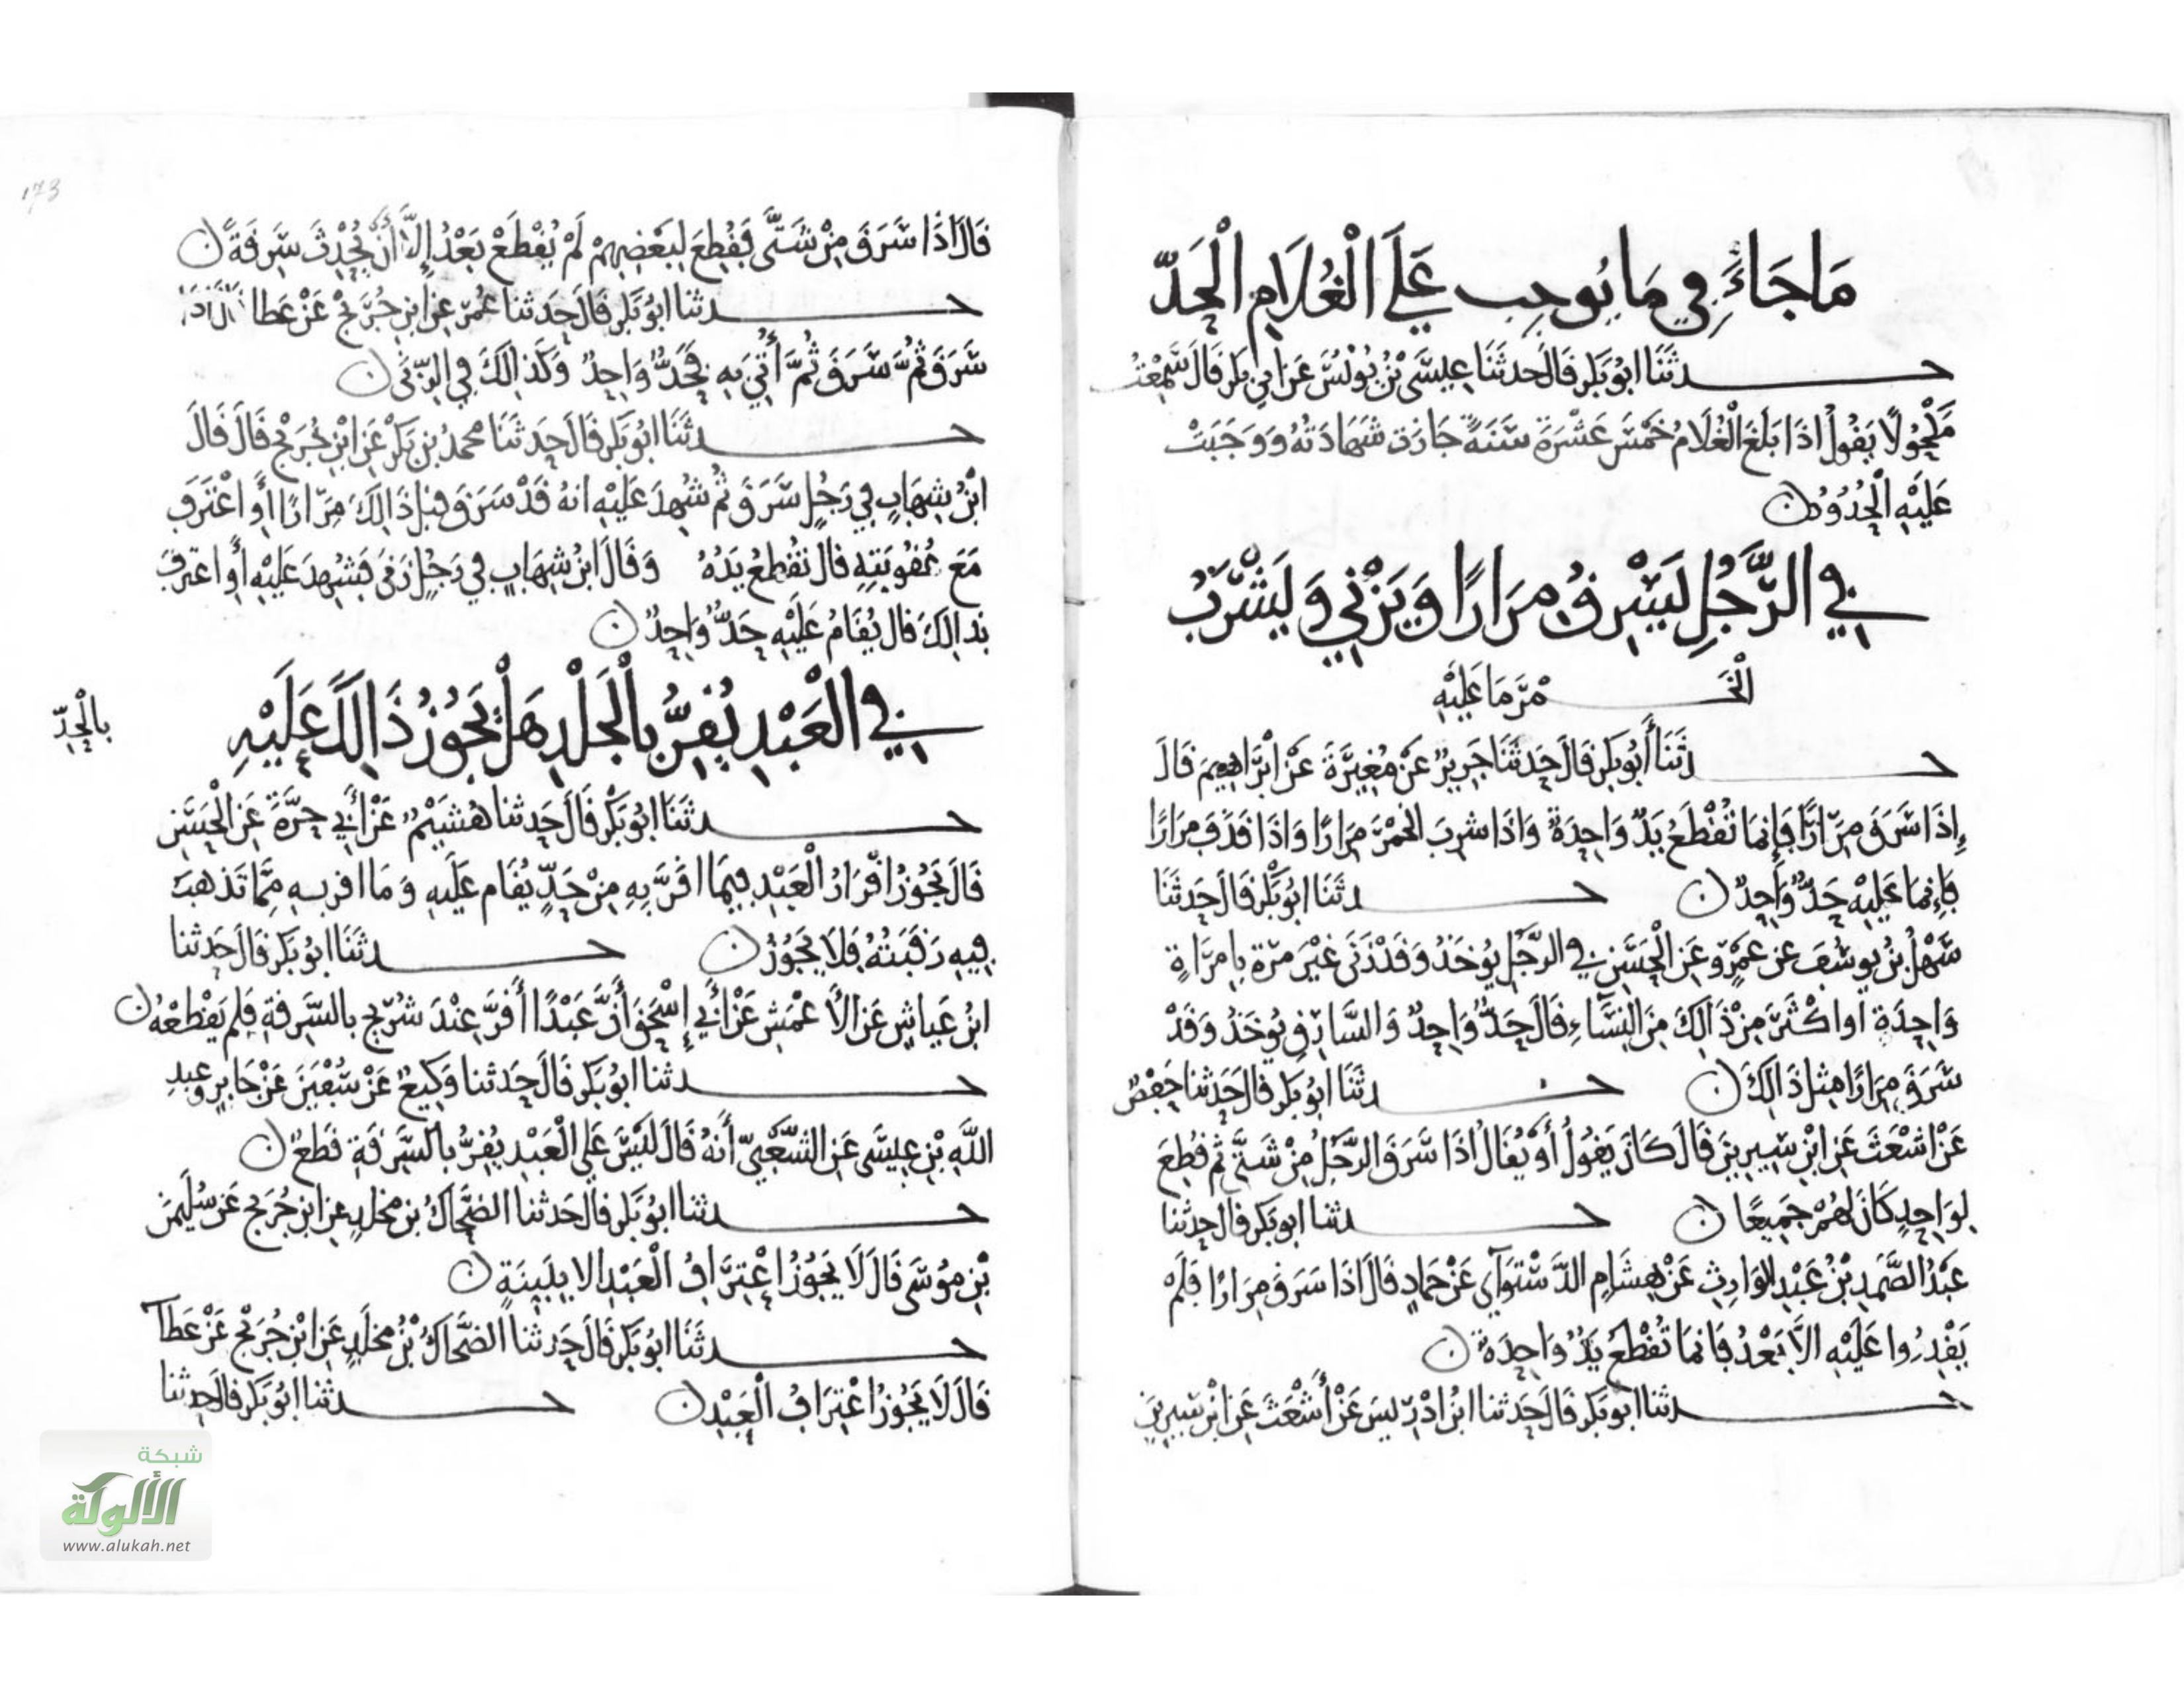 مَا جَاءَ فِي مَا يُوجِب عَلَى الْغُلَامِ الْحَدّ
حدثَنَا ابُو بَكر قَالَ حَدثَنَا عِيسَى بْنُ يُونُسَ عَن ابِي بَكر قَالَ سَمِعْتُ
مَكْحُولًا يَقُولُ اذَا بَلَغَ الْغُلَامُ خَمْسَ عَشْرَةَ سَنَةً جَازَت شَهَادَتُهُ وَوَجَبَتْ
عَلَيْهِ الْحُدُودُ ن
فِي الرَّجُلِ يَسْرِقُ مِرَارًا وَيَزْنِي وَيَشْرَبُ
الْخَمْرَ مَا عَلَيْهِ
حدثَنَا أَبُو بَكر قَالَ حَدثَنَا جَرِيرٌ عَنْ مُغِيرَةَ عَنْ ابْرَاهِيمَ قَالَ
إِذَا سَرَقَ مِرَارًا فَإِنمَا تُقْطَعُ يَدٌ وَاحِدَةٌ وَاذَا شرِبَ الخمْرَ مِرَارًا وَاذَا قَذَفَ مِرَارًا
فَإِنمَا عَلَيْهِ حَدٌّ وَاحِدٌ ن حدثَنَا ابُو بَكر قَالَ حَدثَنَا
سَهْلُ بْنُ يوسُفَ عن عَمْرٍو عَنِ الْحَسَنِ فِي الرَّجُلِ يُوخَذُ وَقَدْ زَنَى غَيْرَ مَرّة بِامرَاةٍ
وَاحِدَة اوْ اكْثَرَ مِنْ ذَالِكَ مِنَ النِّسَاءِ قَالَ حَدٌّ وَاحِدٌ وَالسَّارِق يُوخَذُ وَقَدْ
سَرَقَ مِرَارًا مِثل ذَالِكَ ن حدثَنَا ابُو بَكر قَالَ حَدثَنَا حَفْصٌ
عَنْ اشْعَثَ عَنِ ابْنِ سِيرِينَ قَالَ كَانَ يَقُولُ أَوْ يُقَالُ اذَا سَرَقَ الرَّجُلُ مِنْ شَتَّى ثم قُطِعَ
لِوَاحِدٍ كَانَ لَهُمْ جَمِيعًا ن حدثنا ابو بَكر قَالَ حدثنا
عَبْدُ الصَّمَدِ بْنُ عَبْدِ الْوَارِثِ عَنْ هِشَامٍ الدَّسْتَوَآي عَنْ حَمادٍ قَالَ اذَا سَرَقَ مِرَارًا فَلَمْ
يَقْدِرُوا عَلَيْهِ الاَّ بَعْدُ فَانمَا تُقْطَعُ يَدٌ وَاحِدَةٌ ن
حدثنا ابو بَكر قَالَ حَدثنا ابْنُ ادْرِيسَ عَنْ أَشْعَثَ عَنِ ابْنِ سِيرِينَ
173
قَالَ اذَا سَرَقَ مِنْ شَتَّى فَقُطِعَ لِبَعْضِهِمْ لَمْ يُقْطَعْ بَعْدُ إِلاَّ أَنْ يُحْدِثَ سَرِقَةً ن
حدثنا ابُو بَكر قَالَ حَدثنا عُمَرُ عن ابْنِ جُرَيْجٍ عَنْ عَطا قَالَ اذَا
سَرَقَ ثُمَّ سَرَقَ ثُمَّ أُتِيَ بِهِ فَحَدٌّ وَاحِدٌ وَكَذَالِكَ فِي الزِّنَى ن
حدثَنَا ابُو بَكر قَالَ حَدثَنَا محمدُ بْن بَكْرٍ عَنِ ابْنِ جُرَيْجٍ قَالَ قَالَ
ابْنُ شِهَابٍ فِي رَجُلٍ سَرَقَ ثُمَّ شُهِدَ عَلَيْهِ انهُ قَدْ سَرَقَ قبل ذَالِكَ مِرَارًا أَوِ اعْتَرَفَ
مَعَ عُقُوبَتِهِ قَالَ تُقْطَعُ يَدُهُ وَقَالَ ابْنُ شِهَابٍ فِي رَجُلٍ زَنَى فَشُهِدَ عَلَيْهِ أَوِ اعترفَ
بِذَالِكَ قَالَ يُقَامُ عَلَيْهِ حَدٌّ وَاحِدٌ ن
فِي الْعَبْدِ يُقِرُّ بِالْجَلْدِ هَلْ يَجُوزُ ذَالِكَ عَلَيْهِ
بالْحِدّ
حدثَنَا ابُو بَكْر قَالَ حَدثنا هُشَيْمٌ عَنْ أَبِي حرَّةَ عَنِ الْحَسَنِ
قَالَ يَجُوزُ اقْرَارُ الْعَبْدِ فِيمَا اقَرَّ بِهِ مِنْ حَدٍّ يُقَام عَلَيْهِ وَمَا اقر بِهِ مِمَّا تَذهبُ
فِيهِ رَقَبَتُهُ فَلَا يَجُوزُ ن حدثَنَا ابو بَكر قَالَ حَدثنا
ابْنُ عَياشٍ عَنِ الأَعْمَشِ عَنْ أَبِي إِسْحَقَ أَنَّ عَبْدًا أَقَرَّ عِنْدَ شُرَيْحٍ بِالسَّرِقَةِ فَلم يَقْطَعْهُ ن
حدثنا ابُو بَكر قَالَ حَدثنا وَكِيعٌ عَنْ سُفْيَنَ عَنْ جَابِرٍ وعَبدِ
اللَّهِ بْنِ عِيسَى عَنِ الشَّعْبِيّ أَنَّهُ قَالَ لَيْسَ عَلَى الْعَبْدِ يُقِرُّ بِالسَّرِقَةِ قَطعٌ ن
حدثنا ابُو بَكر قَالَ حَدثنا الضَّحَّاكُ بن مخلدٍ عن ابن جُرَيج عَن سُلَيمَنَ
بْنِ مُوسَى قَالَ لَا يَجُوزُ اعْتِرَافُ الْعَبْدِ الا بِبَيِنَةٍ ن
حدثَنَا ابُو بَكر قَالَ حَدثنا الضَّحَّاكُ بْنُ مخلَدٍ عَنِ ابْنِ جُرَيْجٍ عَنْ عَطَآ
قَالَ لَا يَجُوزُ اعْتِرَافُ الْعَبِيْدِ ن حدثنا ابُو بَكر قَالَ حدثنا
شبكة
الألوكة
www.alukah.net